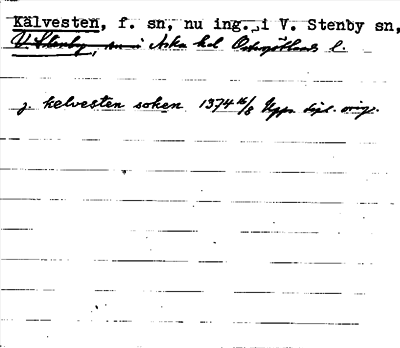 Kälvesten, f. sn, nu ing. i V. Stenby sn,
V. Stenby, sn i Aska hd Östergötlands l.
j. kelvesten soken 1374 16/8 Upps. dipl. orig.